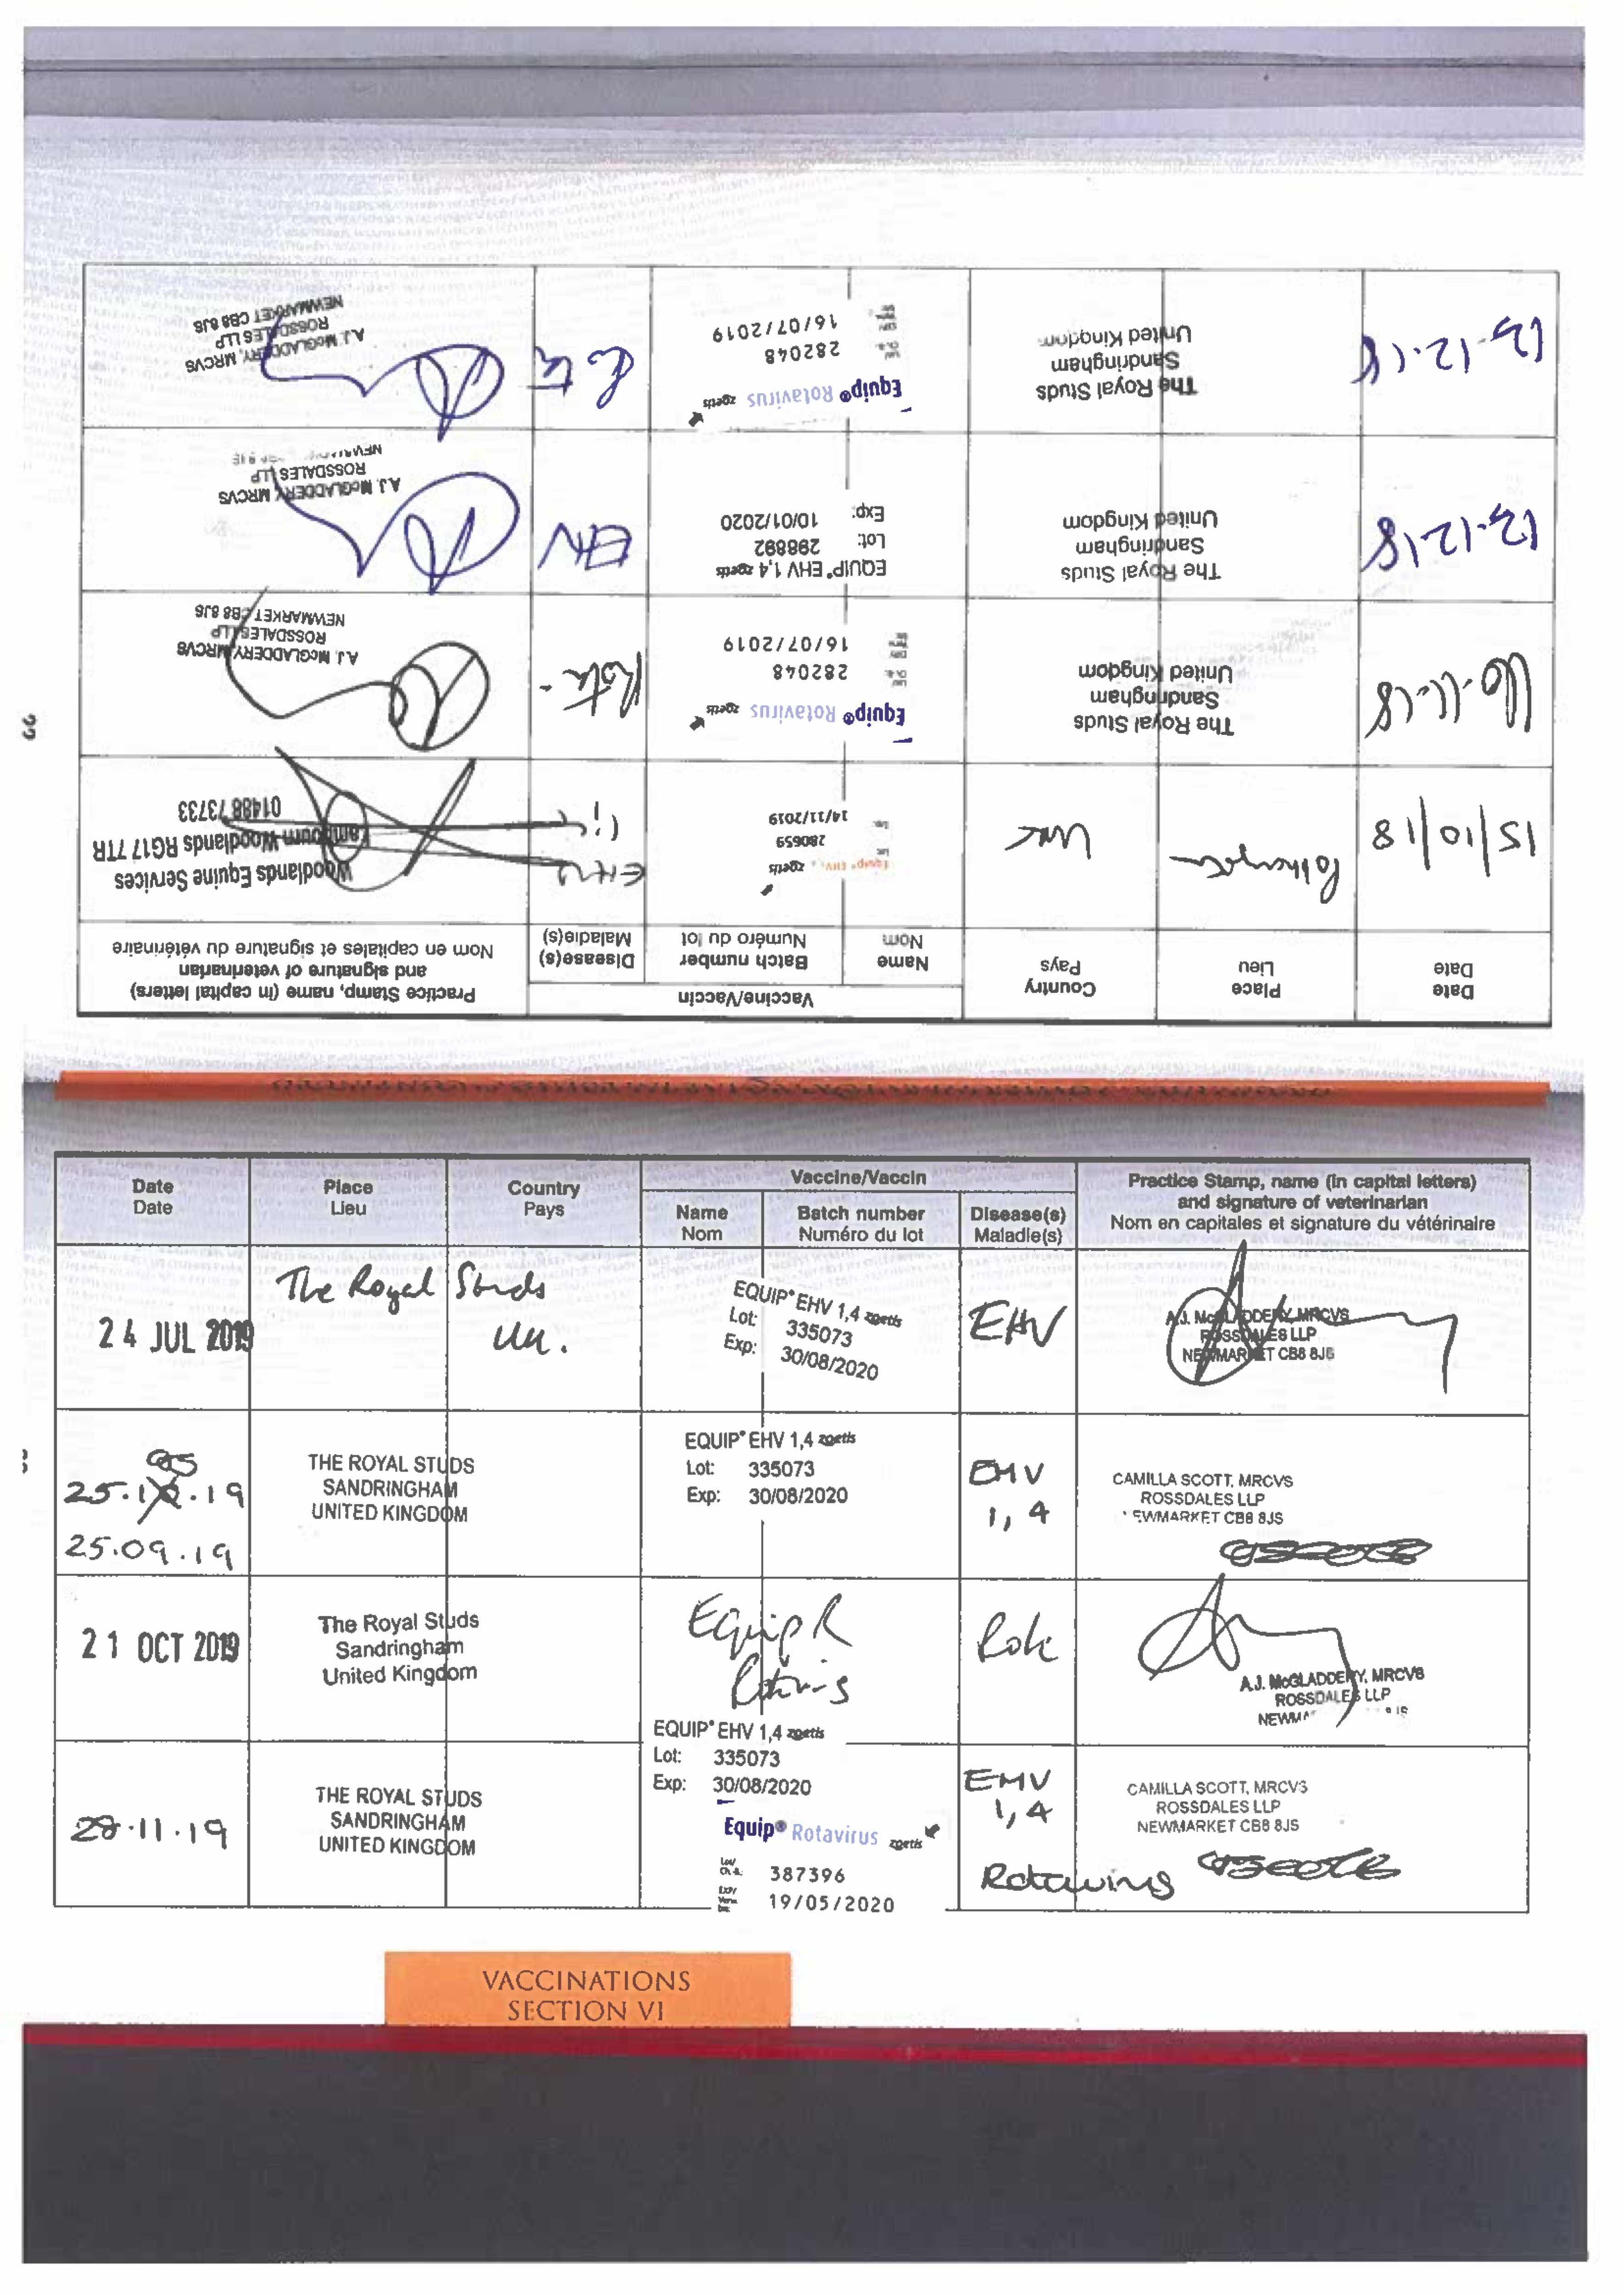 Date
Date
Place
Lieu
Country
Pays
Vaccine/Vaccin
Name
Nom
Batch number
Numéro du lot
Disease(s)
Maladie(s)
Practice Stamp, name (in capital letters)
and signature of veterinarian
Nom en capitales et signature du vétérinaire
15/10/18
UK
Equip® EHV zoetis
280659
14/11/2019
EHV
Woodlands Equine Services
Lambourn Woodlands RG17 7TR
01488 73733
16-11-18
The Royal Studs
Sandringham
United Kingdom
Equip® Rotavirus zoetis
282048
16/07/2019
Rota
A.J. McGLADDERY, MRCVS
ROSSDALES LLP
NEWMARKET CB8 8JS
The Royal Studs
Sandringham
United Kingdom
EQUIP® EHV 1,4 zoetis
Lot: 298892
Exp: 10/01/2020
EHV
A.J. McGLADDERY, MRCVS
ROSSDALES LLP
The Royal Studs
Sandringham
United Kingdom
Equip® Rotavirus zoetis
282048
16/07/2019
A.J. McGLADDERY, MRCVS
ROSSDALES LLP
NEWMARKET CB8 8JS
Date
Date
Place
Lieu
Country
Pays
Vaccine/Vaccin
Name
Nom
Batch number
Numéro du lot
Disease(s)
Maladie(s)
Practice Stamp, name (in capital letters)
and signature of veterinarian
Nom en capitales et signature du vétérinaire
24 JUL 2019
The Royal Studs
UK.
EQUIP® EHV 1,4 zoetis
Lot: 335073
Exp: 30/08/2020
EHV
A.J. McGLADDERY, MRCVS
ROSSDALES LLP
NEWMARKET CB8 8JS
25.09.19
THE ROYAL STUDS
SANDRINGHAM
UNITED KINGDOM
EQUIP® EHV 1,4 zoetis
Lot: 335073
Exp: 30/08/2020
EHV
1,4
CAMILLA SCOTT, MRCVS
ROSSDALES LLP
EWMARKET CB8 8JS
21 OCT 2019
The Royal Studs
Sandringham
United Kingdom
Equip R
A.J. McGLADDERY, MRCVS
ROSSDALES LLP
28.11.19
THE ROYAL STUDS
SANDRINGHAM
UNITED KINGDOM
EQUIP® EHV 1,4 zoetis
Lot: 335073
Exp: 30/08/2020
Equip® Rotavirus zoetis
387396
19/05/2020
EHV
1,4
Rotavirus
CAMILLA SCOTT, MRCVS
ROSSDALES LLP
NEWMARKET CB8 8JS
VACCINATIONS
SECTION VI